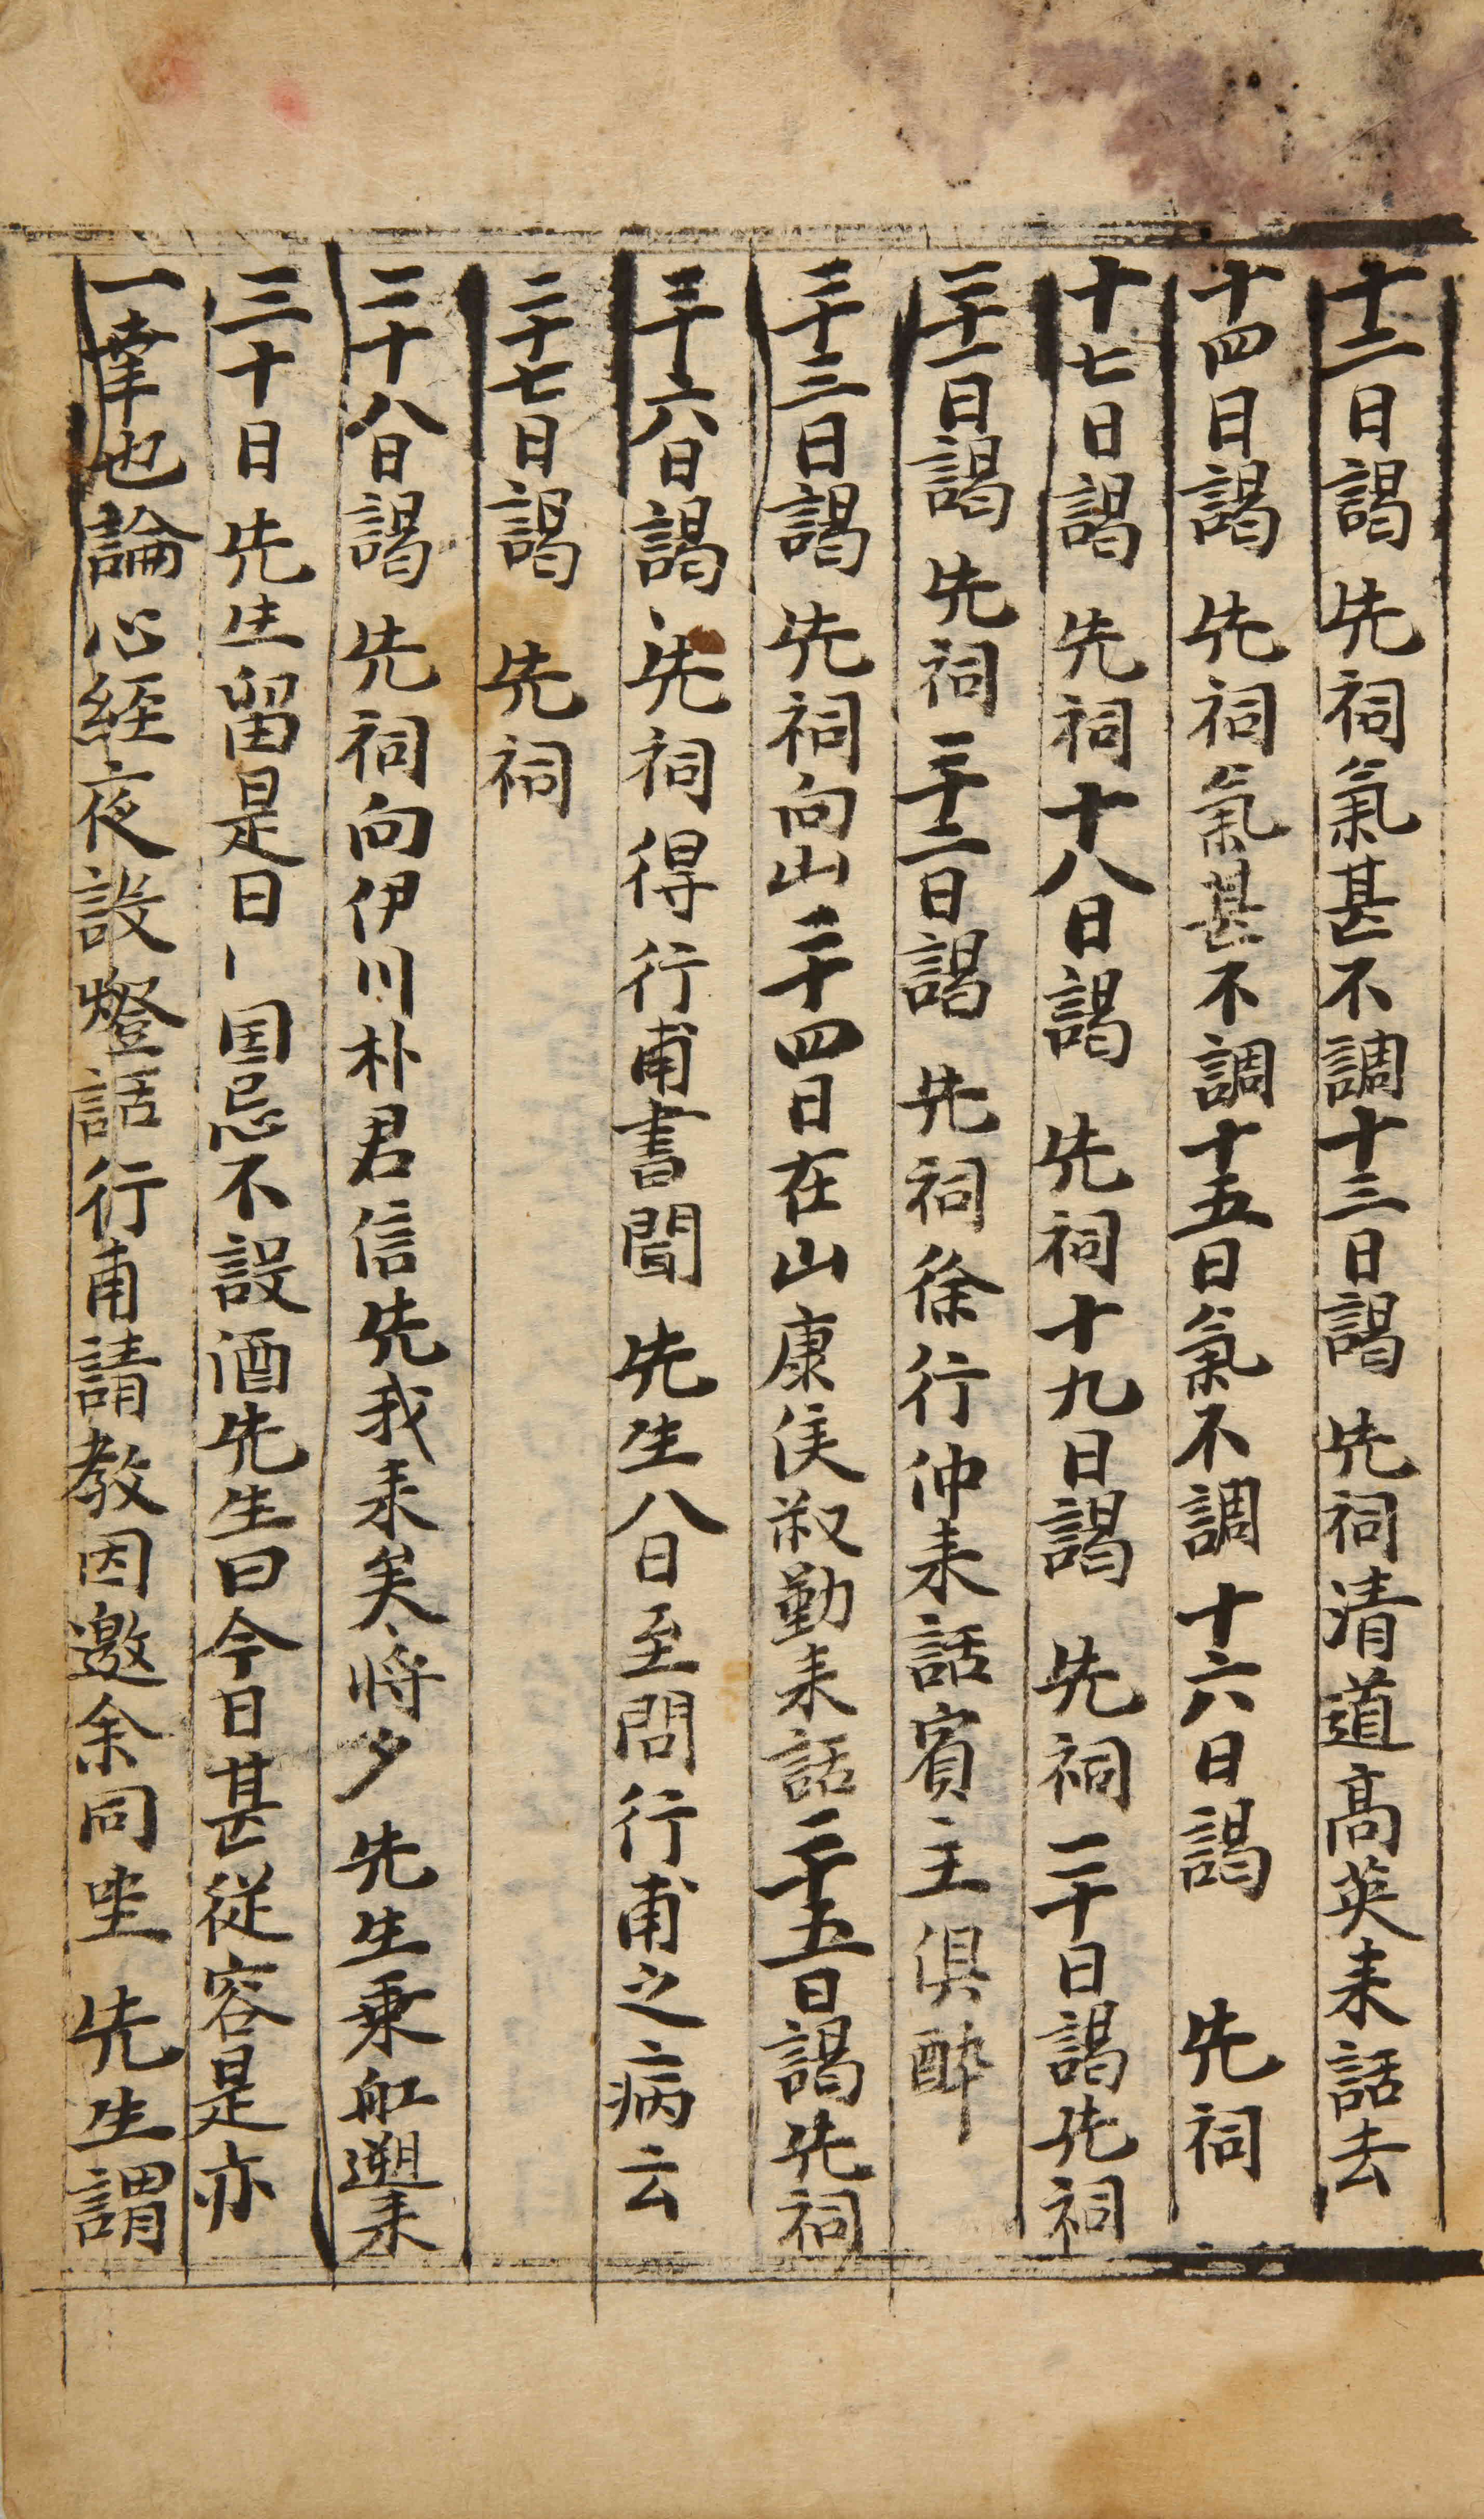 十二日謁 先祠氣甚不調十三日謁 先祠清道高英来話去
十四日謁 先祠氣甚不調十五日氣不調十六日謁 先祠
十七日謁 先祠十八日謁 先祠十九日謁 先祠二十日謁先祠
二十一日謁 先祠二十二日謁 先祠徐行仲来話賓主俱醉
二十三日謁 先祠向山二十四日在山康侯叔勤来話二十五日謁先祠
二十六日謁 先祠得行甫書聞 先生八日至問行甫之病云
二十七日謁 先祠
二十八日謁 先祠向伊川朴君信先我来矣將夕 先生乗舡遡来
三十日 先生留是日 国忌不設酒先生曰今日甚従容是亦
一幸也論心経夜設燈話行甫請教因邀余同坐 先生謂